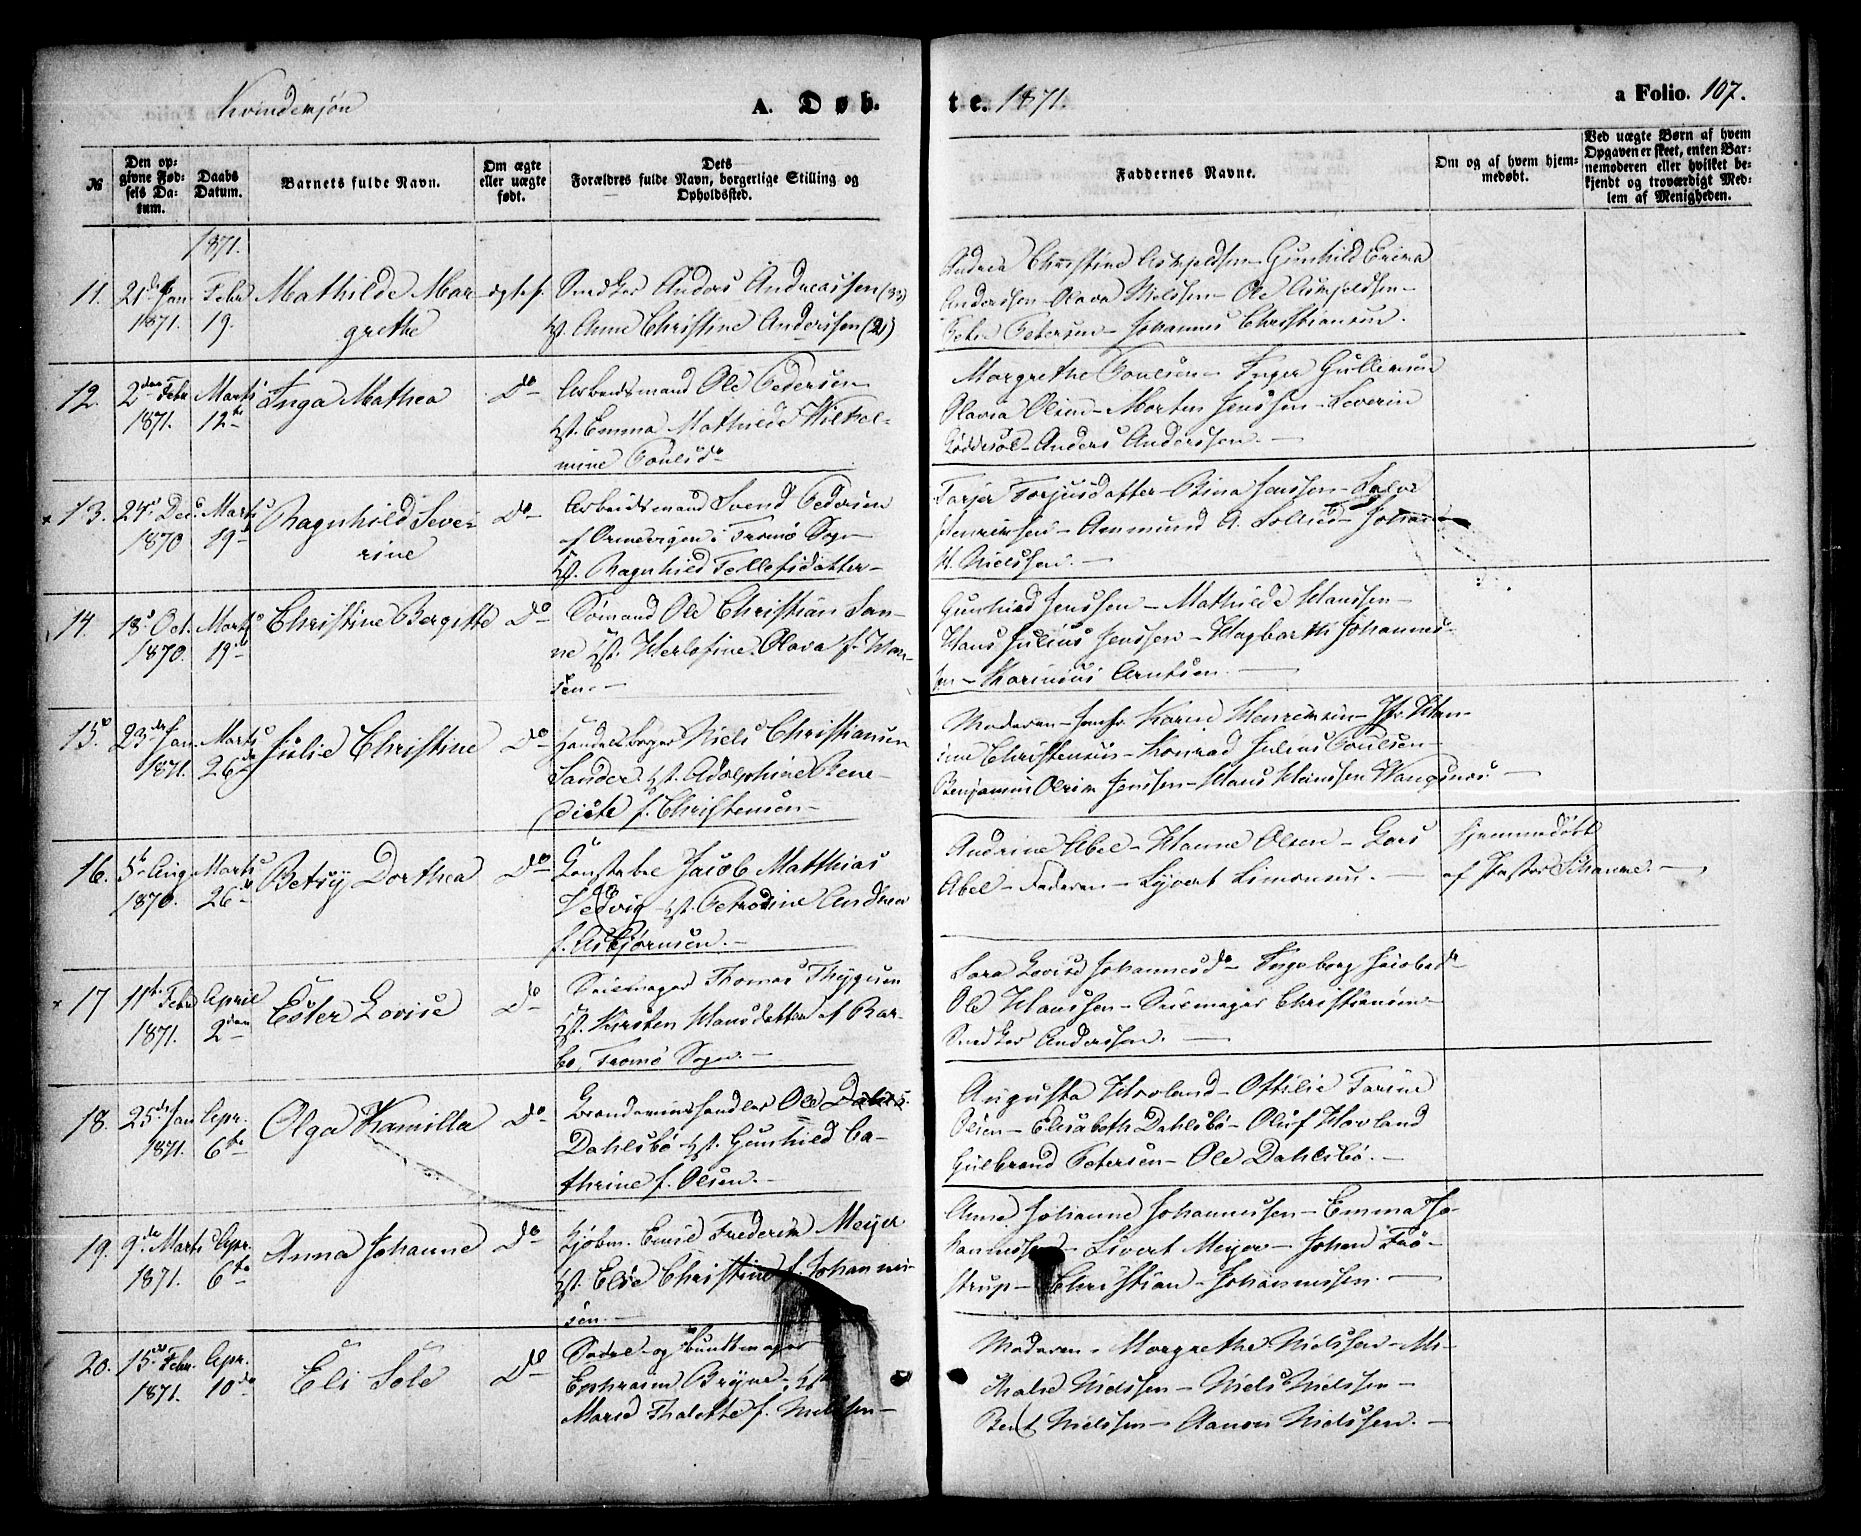 Kvindekjøn
A. Døb-
te. 1871.
a Folio. 107.
№
Den op-
givne Fød-
sels Da-
tum.
Daabs
Datum.
Barnets fulde Navn.
Om ægte
eller uægte
født.
Dets
Forældres fulde Navn, borgerlige Stilling og
Opholdssted.
Faddernes Navne.
Om og af hvem hjem-
medøbt.
Ved uægte Børn af hvem
Opgaven er skeet, enten Bar-
nemoderen eller hvilket be-
kjendt og troværdigt Med-
lem af Menigheden.
1871.
11. 21de Jan 1871. Febr 19. Mathilde Mar-
grethe
Snedker Anders Andreassen (33)
Hst. Anne Christine Anderssen (21)
Andrea Christine - Gunhild
Anderssen - Olava Nielssen - Ole
Petersen - Johannes Christiansen.
12. 2den Febr 1871. Marts 12te Inga Mathea Do
Arbeidsmand Ole Pedersen
Hst. Emma Mathilde Wilhel-
mine Poulsdr
Margrethe Poulsen - Inger Gullersen
Olava Olsen - Morten Jenssen - Severin
Anders Anderssen.
13. Dec. 1870 Marts 19 Ragnhild Seve-
rine Do
Arbeidsmand Svend Pedersen
af Ormevigen i Tromø Sogn
Hst. Ragnhild Tellefsdatter
Torjusdatter - Rina Jenssen - Salve
Henriksen - Aanmund A. - Johan
H. Nielssen.
14. 18 Oct. 1870. Marts 19 Christine Bergitte Do
Sømand Ole Christian San-
ne Hst. Olava f. Han-
sen
Gunhild Jenssen - Mathilde Hanssen
Hans Julius Jenssen - Hagbarth Johannes-
sen - Arntsen.
15. 23de Jan 1871. Marts 26de Julie Christine Do
Niels Christiansen
Sander. Hst. Adolphine Bene-
dicte f. Christensen
Moderen - Karen Henriksen - Jfr. Han-
sine Christensen - Konrad Julius Poulsen
Benjamin Jenssen - Hans Hanssen
16. 5te Aug 1870. Marts 26 Betsy Dorthea Do
Constabel Jacob Matthias
Ledvig Hst. Petrodine Andrea
f. Asbjørnsen.
Andrine Abel - Hanne Olsen - Lars
Abel - Faderen - Syvert Simonsen.
hjemmedøbt
af Pastor
17 11te Febr 1871. April 2den Ester Lovise Do
Seilmager Thomas Thygesen
Hst. Kirsten Hansdatter af Bar-
bo, Tromø Sogn.
Sara Lovise Johannesdr - Ingeborg Jacobsdr
Ole Hanssen - Seilmager Christiansen
Snedker Anderssen.
18. 25de Jan 1871. Apr. 6te Olga Kamilla Do
Brændeviinshandler Ole
Dahlsbø Hst. Gunhild Ca-
thrine f. Olsen.
Augusta Hovland - Othilie Tarine
Olsen - Elisabeth Dahlsbø - Oluf Hovland
Gulbrand Petersen - Ole Dahlsbø.
19. 9de Marts 1871. Apr. 6te Anna Johanne Do
Kjøbm. Emil Frederik Meyer
Hst. Elise Christine f. Johannes-
sen.
Anna Johanne Johannessen - Emma Jo-
hannessen - Sivert Meyer - Johan Frø-
strup - Christian Johannessen.
20. 15de Febr. 1871. Apr. 10de Eli Sole Do
Sadel- og Buntmager
Ephraim Bryne Hst
Marie Thalette f. Nielssen
Moderen - Margrethe Nielssen - Mi-
Nielssen - Niels Nielssen
Berit Nielssen - Aanon Nielssen.